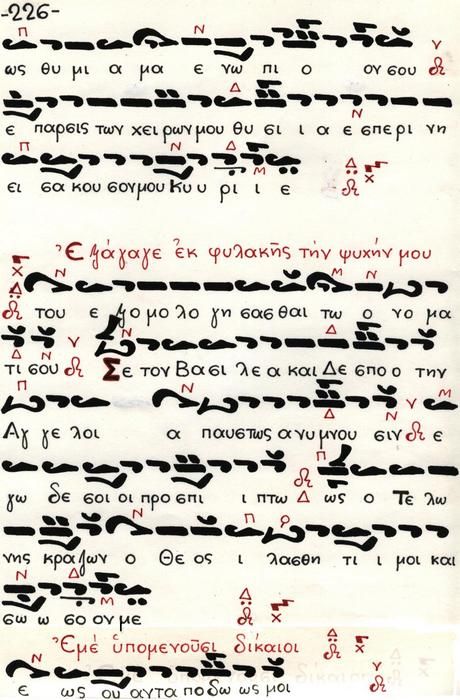 -226-
ως θυ μι α μα ε νω πι ο ου σου
ε παρσις των χει ρων μου θυ σι ι α ε σπερι νη
ει σα κου σον μου Κυ υ ρι ι ε
Ἐξάγαγε ἐκ φυλακῆς τὴν ψυχήν μου
του ε ξο μο λο γη σασ θαι τω ο νο μα
τι σου Σε τον Βασι λε α και Δε σπο ο την
Αγ γε λοι α παυστως α νυ μνου σιν ε
γω δε σοι οι προ σπι ι πτω ως ο Τε λω
νης κραζων ο Θε ος ι λασθη τι ι μοι και
σω ω σο ον με
Ἐμὲ ὑπομενοῦσι δίκαιοι
ε ως ου αντα ποδω ως μοι